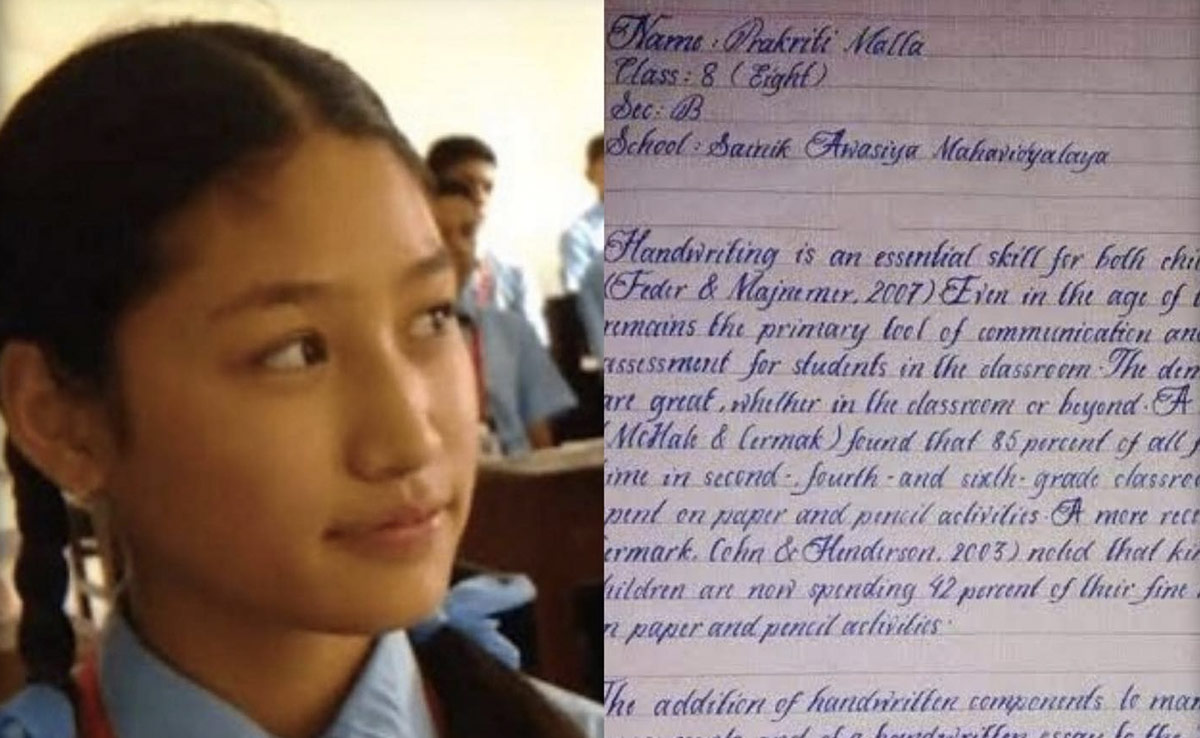 Name : Prakriti Malla
Class : 8 (Eight)
Sec : B
School : Sainik Awasiya Mahavidyalaya
Handwriting is an essential skill for both chi
(Feder & Majnemer, 2007) Even in the age of
remains the primary tool of communication an
assessment for students in the classroom. The dem
are great, whether in the classroom or beyond. A
(McHale & Cermak) found that 85 percent of all f
ime in second-, fourth-and sixth-grade classroo
pent on paper and pencil activities. A more rec
ermark, Cohn & Henderson, 2003) noted that ki
hildren are now spending 42 percent of their fine
n paper and pencil activities.
The addition of handwritten components to man
and of a handwritten essay to the